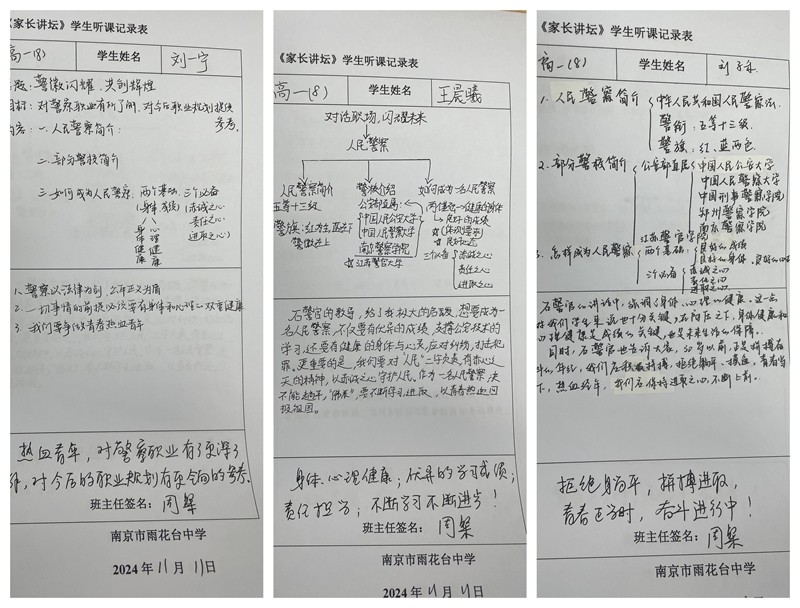 《家长讲坛》学生听课记录表
高一(8) 学生姓名 刘一宁
题：警徽闪耀，共创辉煌
目标：对警察职业有所了解，对今后职业规划提供
参考。
内容：一.人民警察简介：
二.部分警校简介
三.如何成为人民警察：两个基础 三个必备
(身体 成绩) (赤诚之心
身 心 责任之心
体 理 进取之心)
健 健
康 康
1.警察以法律为剑，公平正义为盾
2.一切事情的前提必须要有身体和心理心双重健康
3.我们要争做青春热血青年
热血青年，对警察职业有了更深了
解，对今后的职业规划有更全面的参考。
班主任签名：周粲
南京市雨花台中学
2024年11月11日
《家长讲坛》学生听课记录表
高一(8) 学生姓名 王晨曦
对话职场，闪耀未来
人民警察
人民警察简介 警校介绍 如何成为一名人民警察
五等十三级 公安部直属： 两个基础：健康的身体
警族：红为主，蓝在下 中国人民公安大学 良好的成绩
警徽在上 中国人民警察大学
南京警察学院 三个必备：赤诚之心
江苏警官大学 责任之心
进取之心
石警官的教导，给予我极大的启发，想要成为一
名人民警察，不仅要有优异的成绩，支撑公安技术的
学习，还要有健康的身体与心灵，应对纠纷，打击犯
罪。更重要的是，我们要对“人民”二字负责，有赤心追
天的精神，以赤诚之心守护人民。作为一名人民警察，决
不能“躺平”，“佛系”，要不断学习进取，以青春热血回
报祖国。
身体、心理健康；优异的学习成绩；
责任担当；不断学习不断进步！
班主任签名：周粲
南京市雨花台中学
2024年11月11日
《家长讲坛》学生听课记录表
高一(8) 学生姓名
1.人民警察简介 中华人民共和国人民警察法
警衔：五等十三级
警族：红、蓝两色
2.部分警校简介 公安部直属 中国人民公安大学
中国人民警察大学
中国刑事警察学院
郑州警察学院
南京警察学院
江苏警官学院
3.怎样成为人民警察 两个基础：良好的成绩
良好的身体
三个必备 赤诚之心
责任之心
进取之心
石警官的讲话中，强调了身体、心理的健康。这一点
对我们学生来说也十分关键，在高压之下，身体健康和
心理健康是成绩的关键，也是未来生活的保障。
同时，石警官也告诉大家，50岁以前，正是拼搏奋
斗的年纪，我们应积极拼搏，拒绝躺平、摸鱼，青春当
下，热血终年，我们应保持进取之心，不断上前。
拒绝躺平，拼搏进取，
青春正当时，奋斗进行中！
班主任签名：周粲
南京市雨花台中学